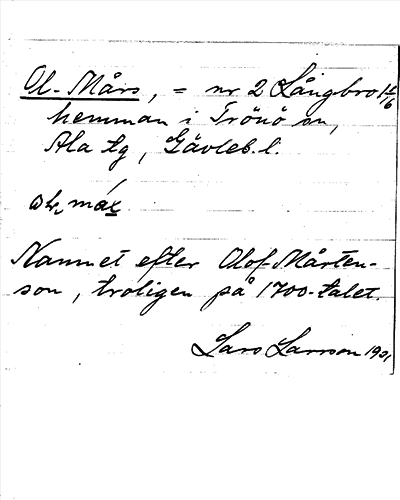 Ol-Mårs, = nr 2 Långbro 1/6
hemman i Trönö sn,
Ala tg, Gävleb. l.
Namnet efter Olof Mårten-
son, troligen på 1700-talet.
Lars Larsson 1921